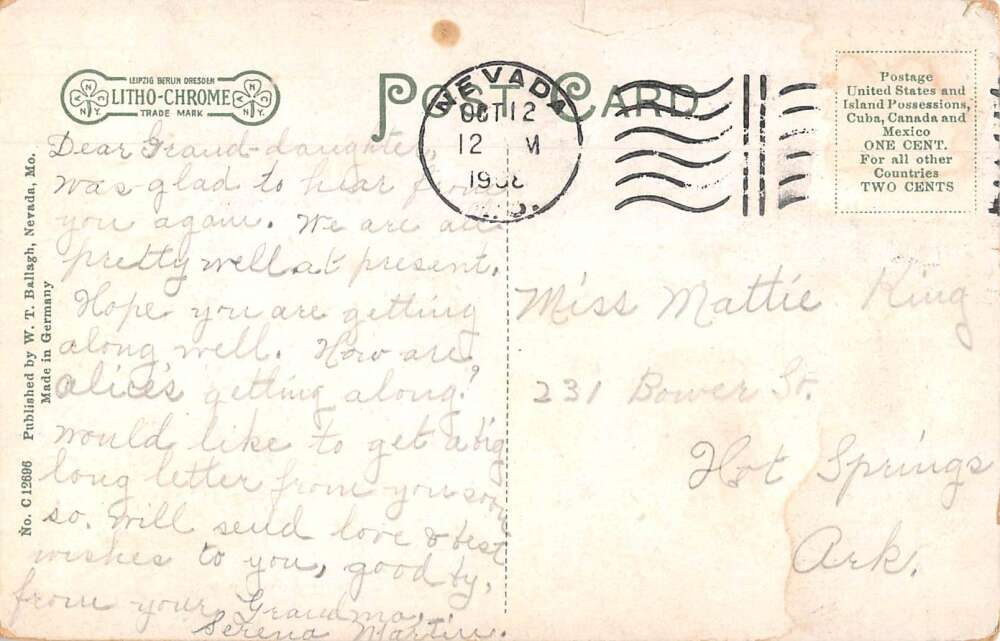 LEIPZIG BERLIN DRESDEN
LITHO-CHROME
TRADE MARK
N.Y.
N.Y.
POST CARD
NEVADA
OCT 12
12 M
190
Postage
United States and
Island Possessions,
Cuba, Canada and
Mexico
ONE CENT.
For all other
Countries
TWO CENTS
Dear Grand-daughter,
was glad to hear from
you again. We are all
pretty well at present.
Hope you are getting
along well. How are
Alice's getting along?
Would like to get a big
long letter from you soon
so. will send love & best
wishes to you, good by,
from your Grandma,
Serena Martin.
Miss Mattie King
231 Bower St.
Hot Springs
Ark.
No. C 12696 Published by W. T. Ballagh, Nevada, Mo.
Made in Germany